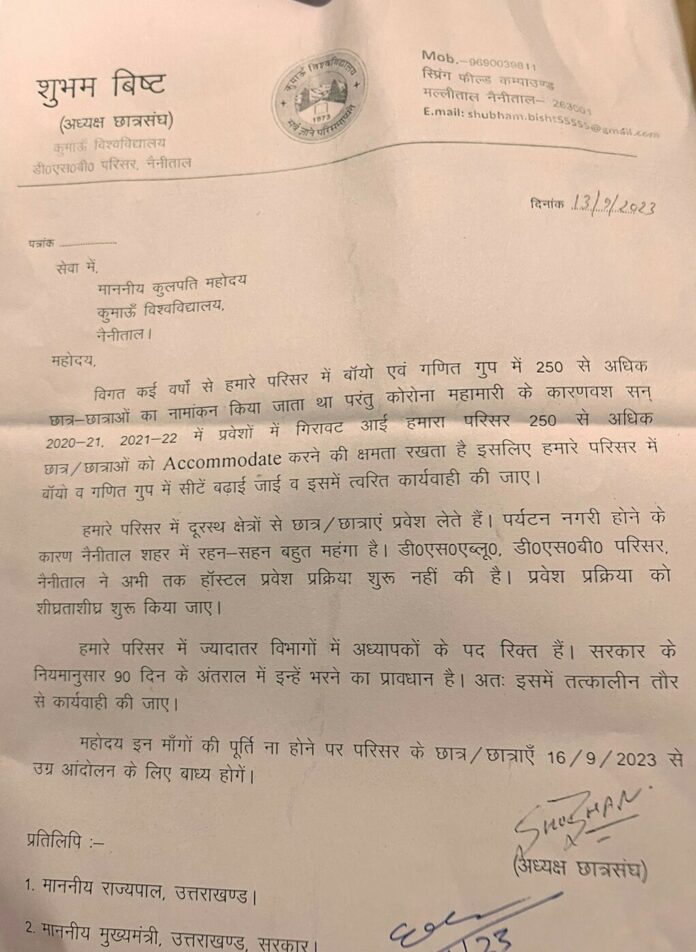 शुभम बिष्ट
(अध्यक्ष छात्रसंघ)
कुमाऊँ विश्वविद्यालय
डी0एस0बी0 परिसर, नैनीताल
कुमाऊँ विश्वविद्यालय
1973
Mob.-9690039811
स्प्रिंग फील्ड कम्पाउण्ड
मल्लीताल नैनीताल- 263001
E.mail: shubham.bisht55555@gmail.com
दिनांक 13/9/2023
पत्रांक
सेवा में,
माननीय कुलपति महोदय
कुमाऊँ विश्वविद्यालय,
नैनीताल।
महोदय,
विगत कई वर्षो से हमारे परिसर में बॉयो एवं गणित गुप में 250 से अधिक
छात्र-छात्राओं का नामांकन किया जाता था परंतु कोरोना महामारी के कारणवश सन्
2020-21, 2021-22 में प्रवेशों में गिरावट आई हमारा परिसर 250 से अधिक
छात्र/छात्राओं को Accommodate करने की क्षमता रखता है इसलिए हमारे परिसर में
बॉयो व गणित गुप में सीटें बढ़ाई जाई व इसमें त्वरित कार्यवाही की जाए।
हमारे परिसर में दूरस्थ क्षेत्रों से छात्र/छात्राएं प्रवेश लेते हैं। पर्यटन नगरी होने के
कारण नैनीताल शहर में रहन-सहन बहुत महंगा है। डी0एस0एब्लू0, डी0एस0बी0 परिसर,
नैनीताल ने अभी तक हॉस्टल प्रवेश प्रक्रिया शुरू नहीं की है। प्रवेश प्रक्रिया को
शीघ्रताशीघ्र शुरू किया जाए।
हमारे परिसर में ज्यादातर विभागों में अध्यापकों के पद रिक्त हैं। सरकार के
नियमानुसार 90 दिन के अंतराल में इन्हें भरने का प्रावधान है। अतः इसमें तत्कालीन तौर
से कार्यवाही की जाए।
महोदय इन माँगों की पूर्ति ना होने पर परिसर के छात्र/छात्राएँ 16/9/2023 से
उग्र आंदोलन के लिए बाध्य होगें।
(अध्यक्ष छात्रसंघ)
प्रतिलिपि :-
1. माननीय राज्यपाल, उत्तराखण्ड।
2. माननीय मुख्यमंत्री, उत्तराखण्ड, सरकार।